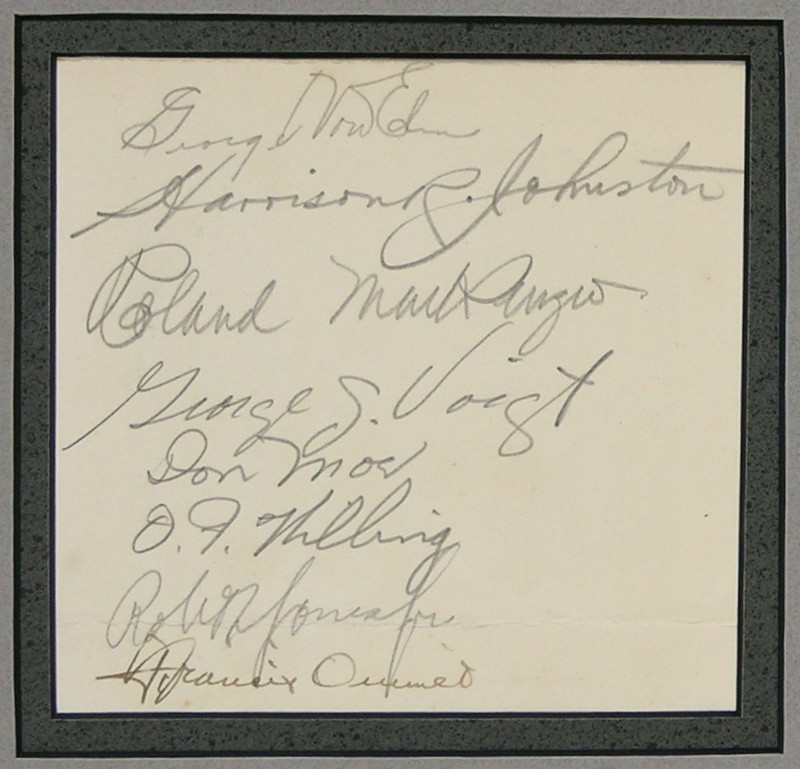 George Von Elm
Harrison R. Johnston
Roland MacKenzie
George J. Voigt
Don Moe
O. F. Willing
Robt T Jones Jr
Francis Ouimet